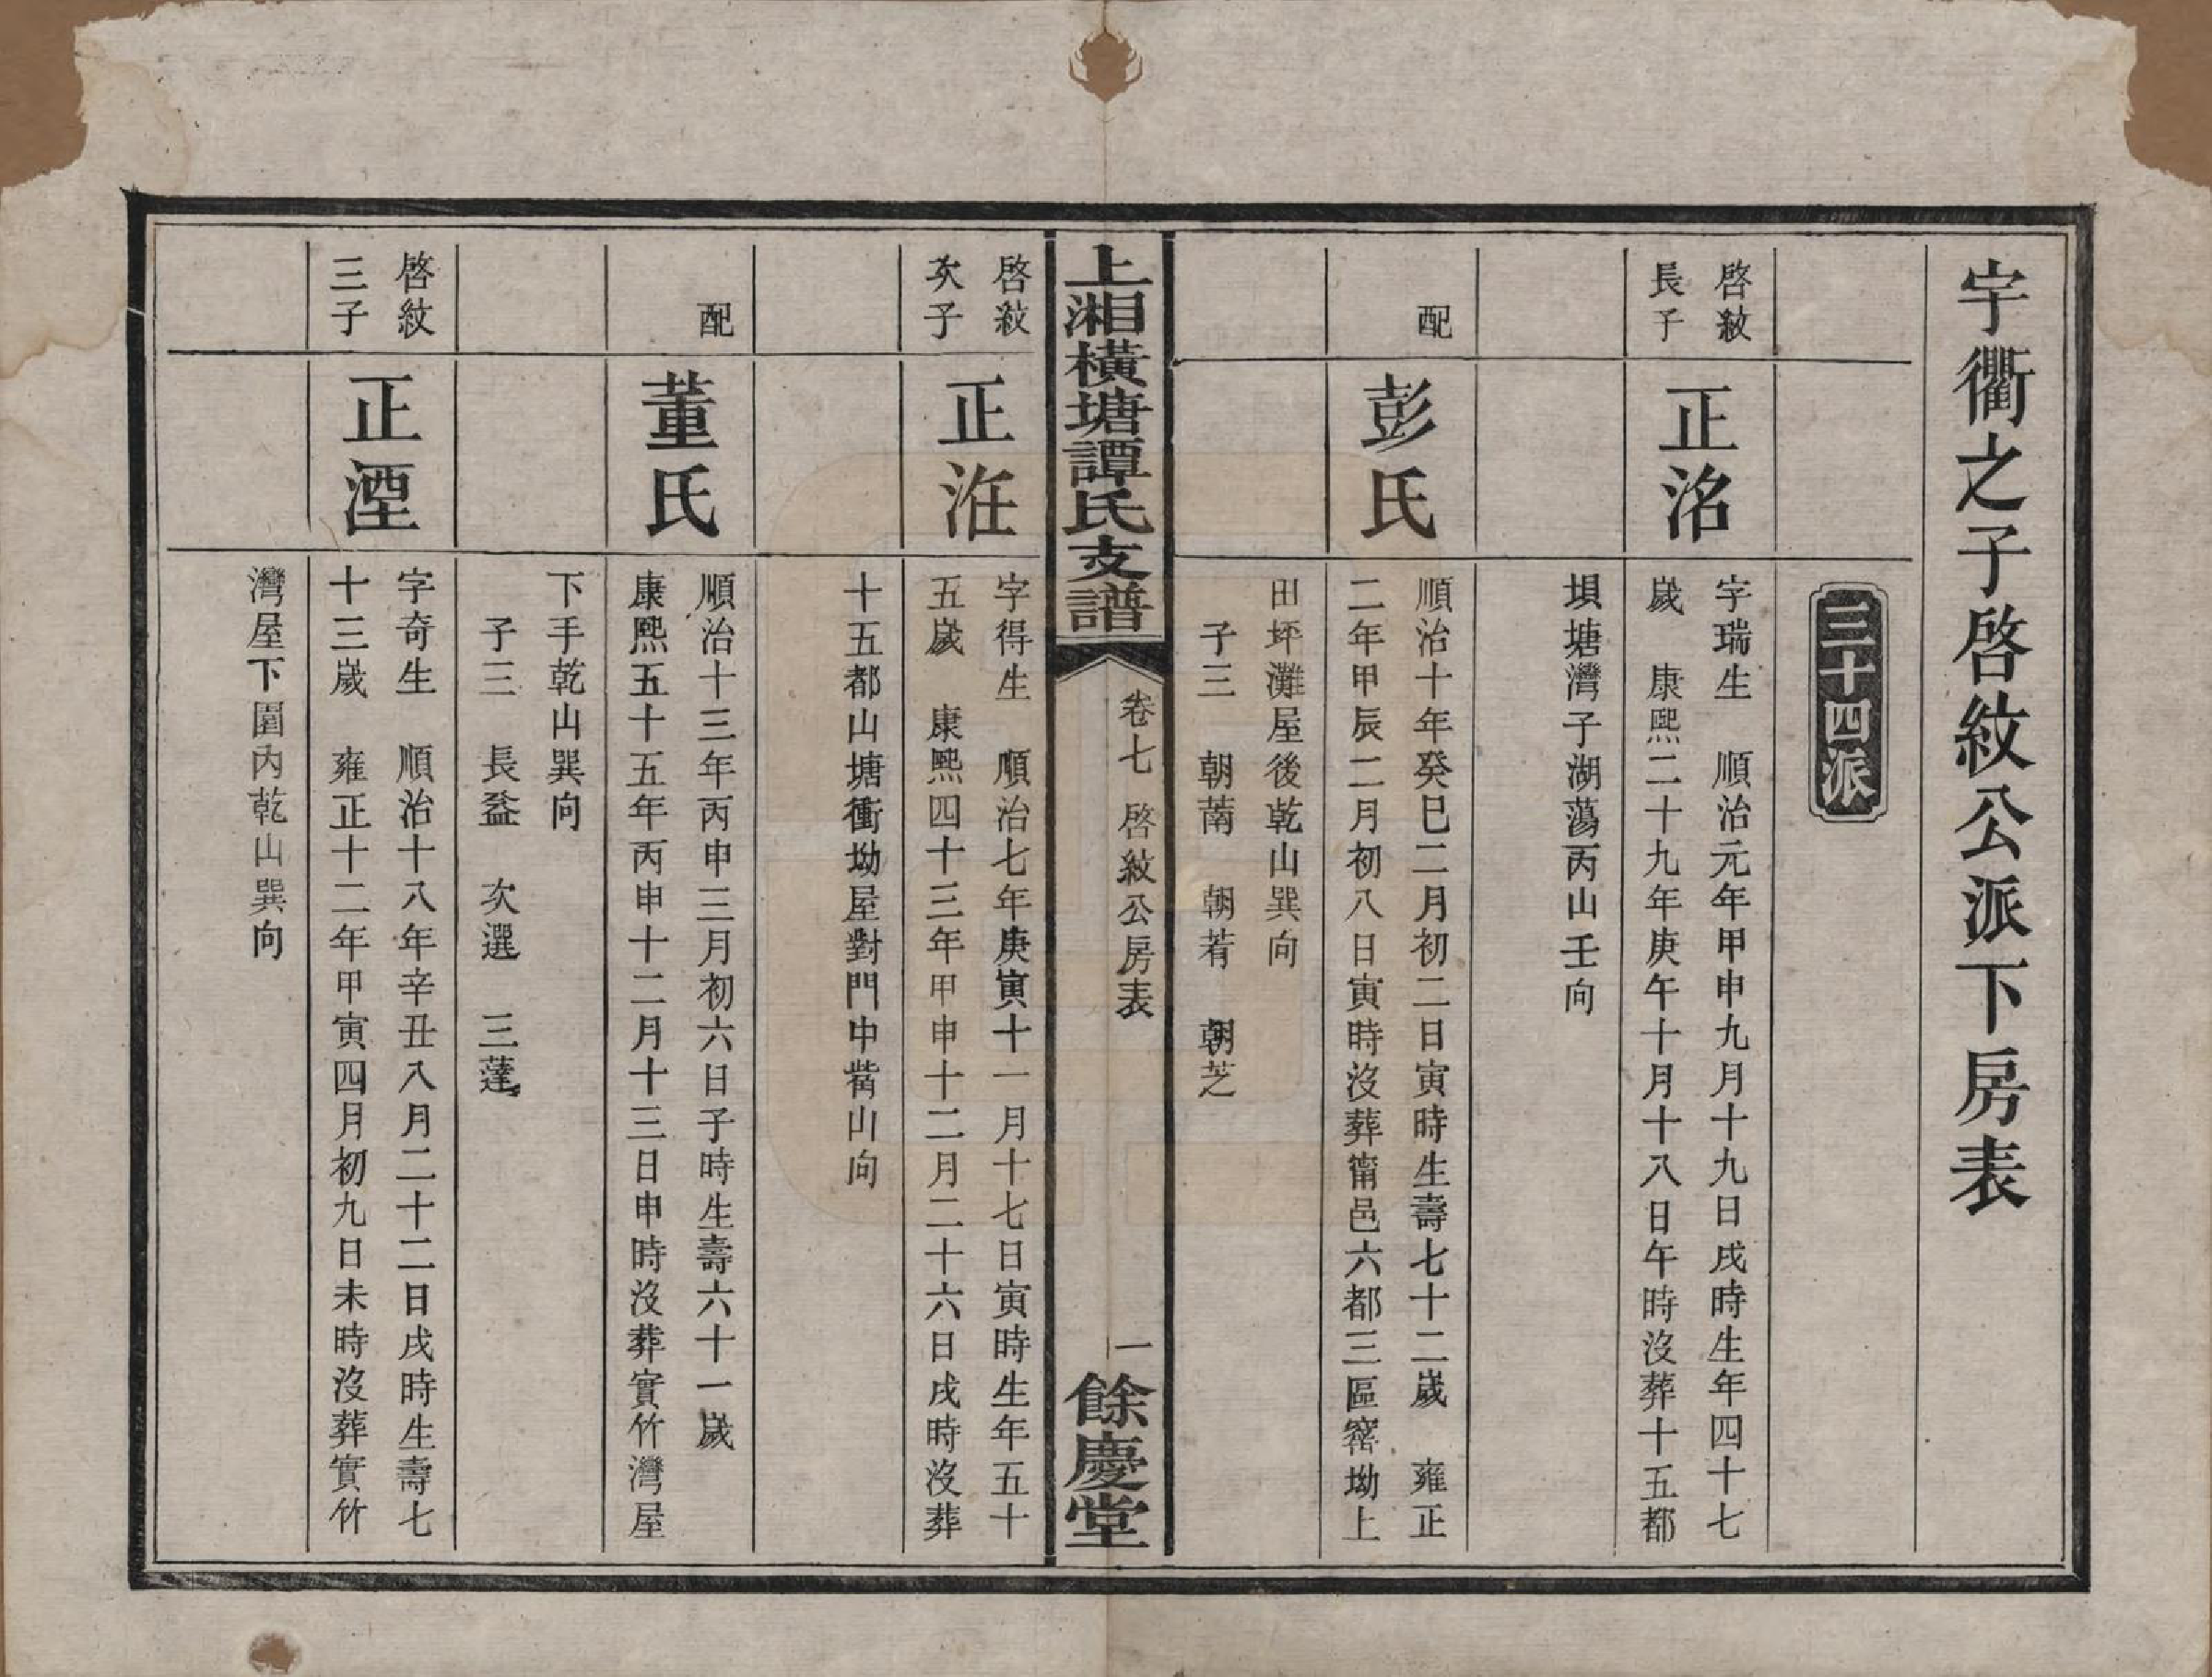 宇衢之子啓紋公派下房表
三十四派
啓紋
長子
正洺
字瑞生　順治元年甲申九月十九日戌時生年四十七
歲　康熙二十九年庚午十月十八日午時沒葬十五都
垻塘灣子湖蕩丙山壬向
配
彭氏
順治十年癸巳二月初二日寅時生壽七十二歲　雍正
二年甲辰二月初八日寅時沒葬甯邑六都三區窰坳上
田坪灘屋後乾山巽向
子三　朝萳　朝若　朝芝
上湘橫塘譚氏支譜
卷七　啓紋公房表
一
餘慶堂
啓紋
次子
正泩
字得生　順治七年庚寅十一月十七日寅時生年五十
五歲　康熙四十三年甲申十二月二十六日戌時沒葬
十五都山塘衝坳屋對門中嘴山向
配
董氏
順治十三年丙申三月初六日子時生壽六十一歲
康熙五十五年丙申十二月十三日申時沒葬實竹灣屋
下手乾山巽向
子三　長益　次選　三蓬
啓紋
三子
正湮
字奇生　順治十八年辛丑八月二十二日戌時生壽七
十三歲　雍正十二年甲寅四月初九日未時沒葬實竹
灣屋下園內乾山巽向